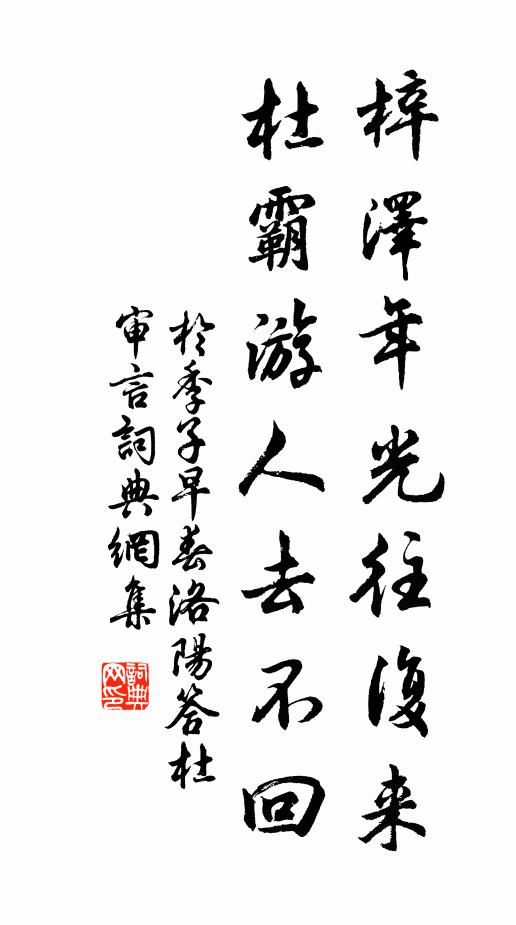 梓澤年光往復来
杜霸游人去不回
於季子早春洛陽答杜
审言詞典網集
詞典网印